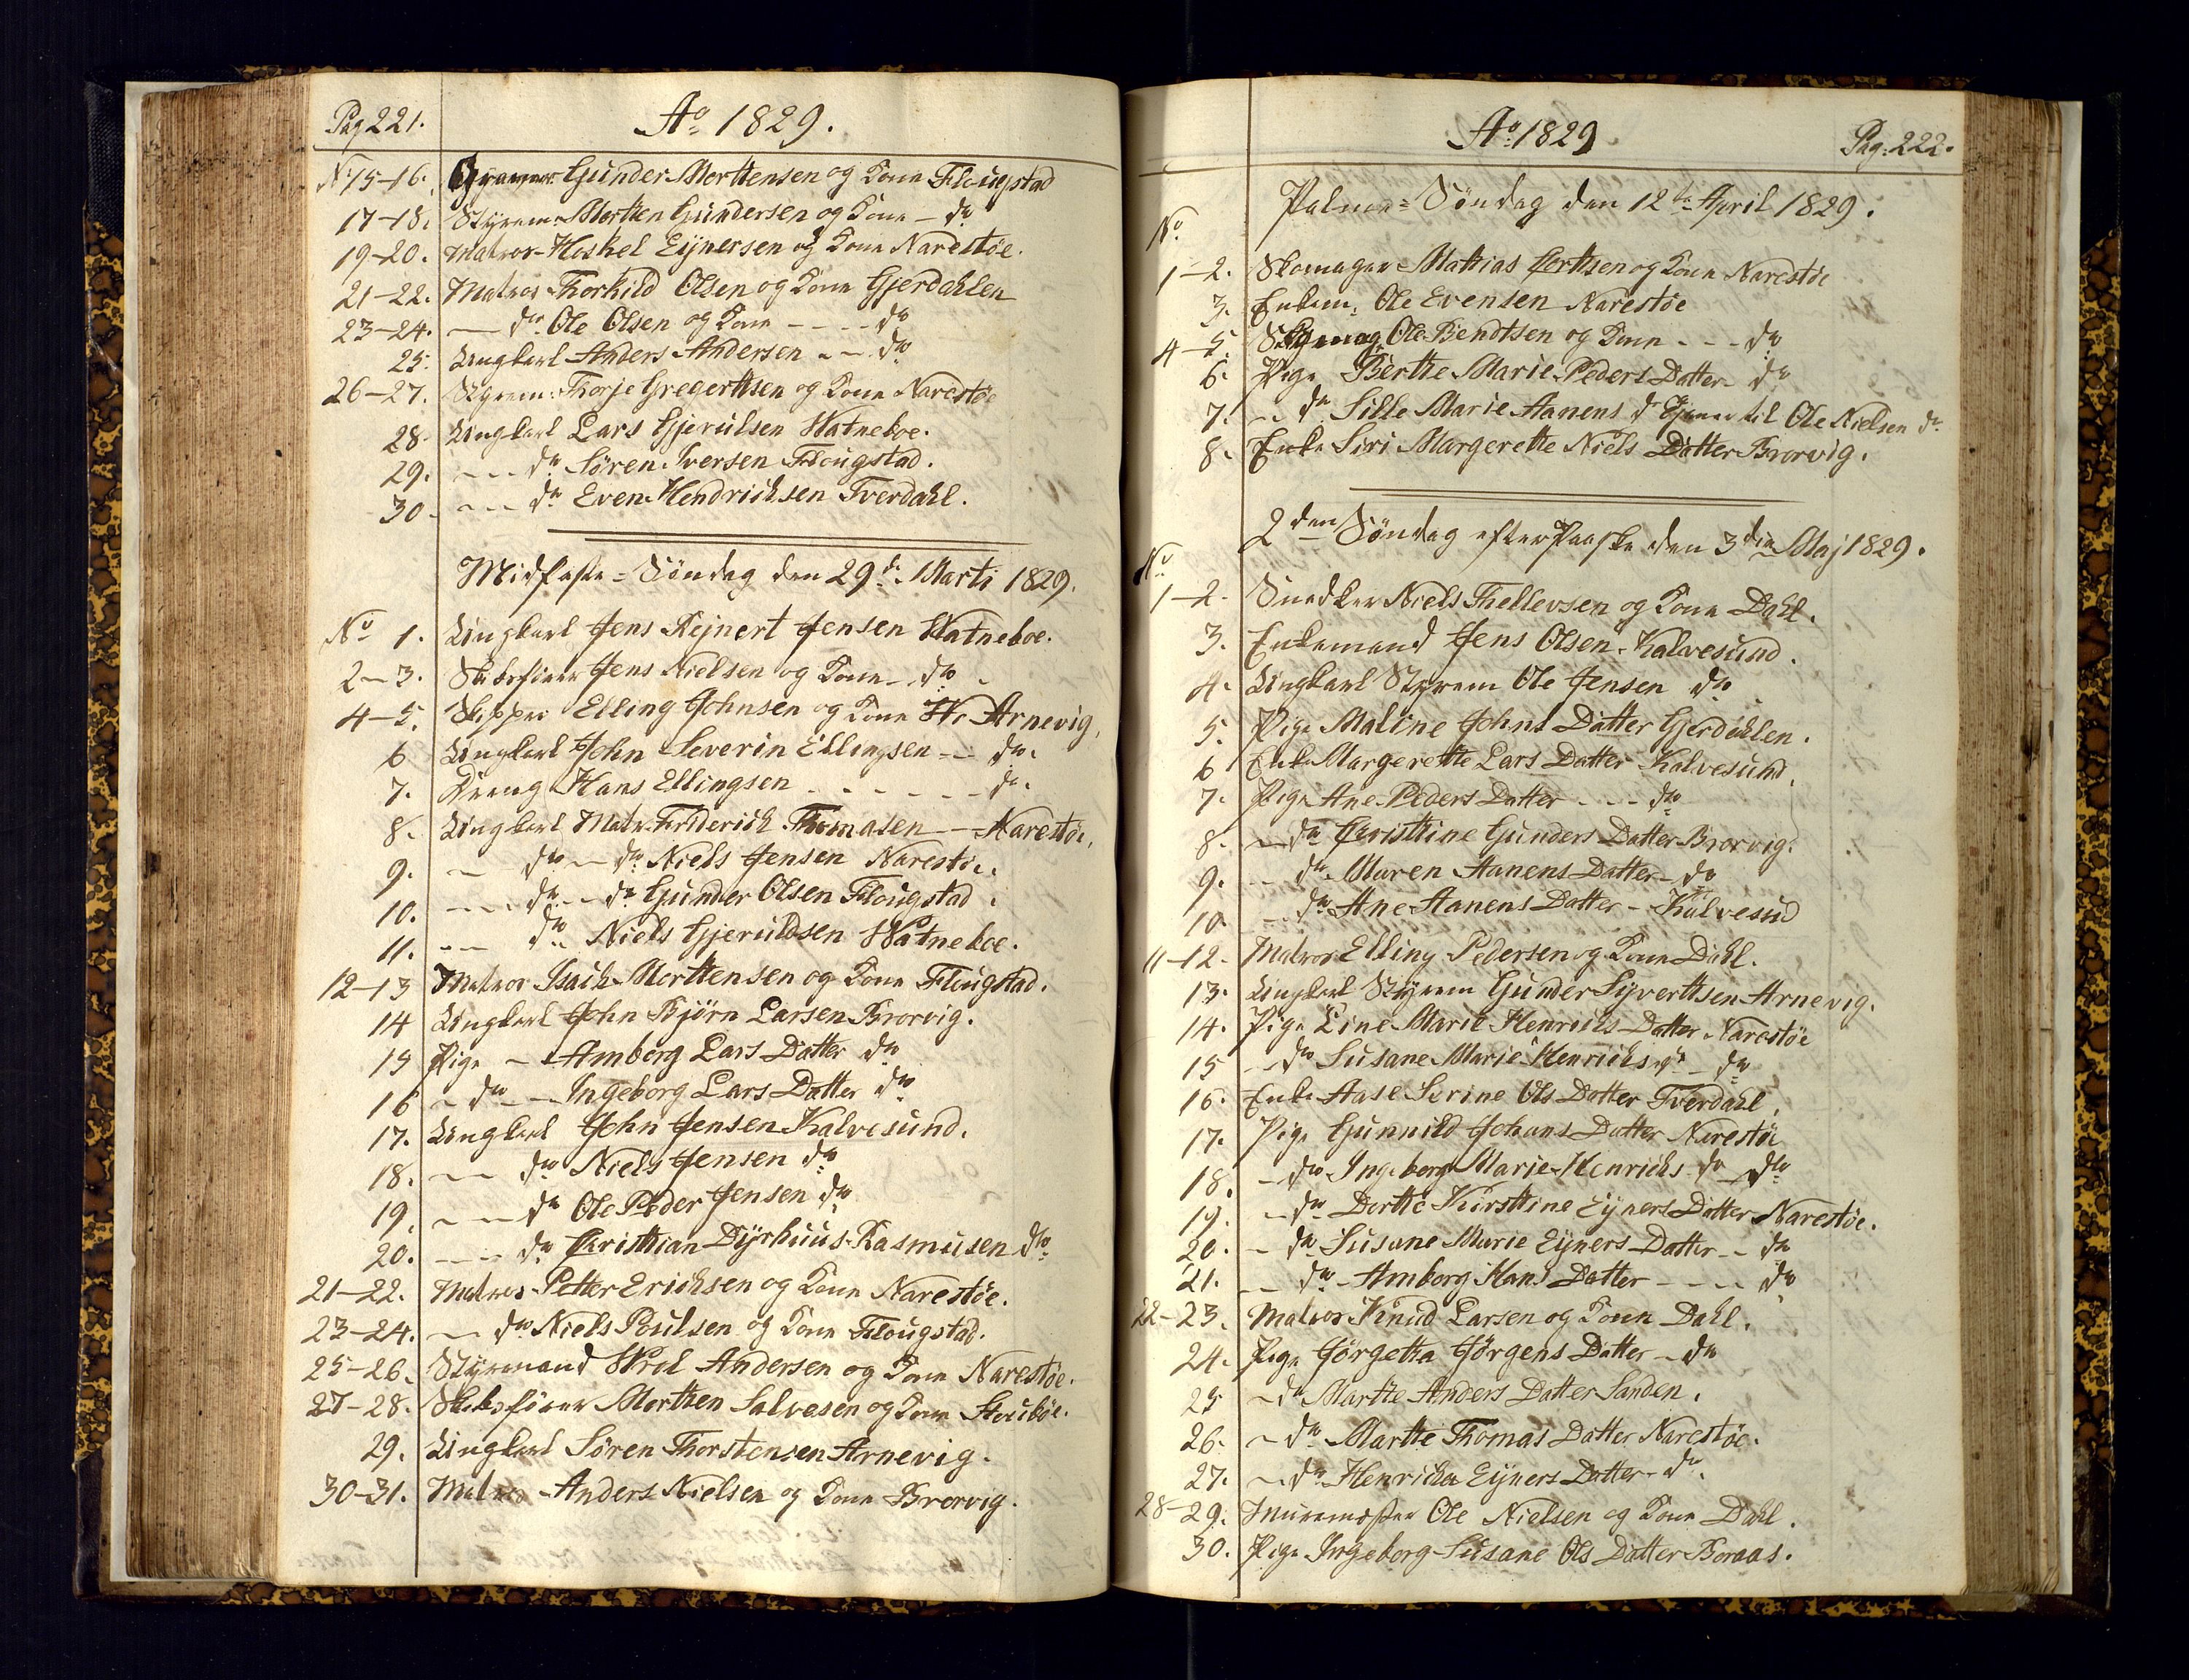 Pag 221.
Ao 1829.
No 15-16. Gunder Morttensen og Kone Flougstad
17-18. Styrem. Mortten Gundersen og Kone - do
19-20. Matros Hoskel Eynersen og Kone Narestøe.
21-22. Matros Thorkild Olsen og Kone Gjerdahlen
23-24. — do Ole Olsen og Kone - - - - do
25. Ungkarl Anders Andersen - - do
26-27. Styrem: Thorje Gregerttsen og Kone Narestøe
28. Ungkarl Lars Gjerulsen Watneboe.
29. - - - do Søren Iversen Flougstad.
30. - - - do Even Hendrichsen Tverdahl.
Midfaste-Søndag den 29de Marti 1829.
No 1. Ungkarl Jens Rejnert Jensen Watneboe.
2-3. Skibsfører Jens Nielsen og Kone - do
4-5. Skipper Elling Johnsen og Kone W: Arnevig,
6 Ungkarl John Severin Ellingsen - - do.
7. Dreng Hans Ellingsen - - - - - - do.
8. Ungkarl Matr. Friderich Thomasen - - Narestøe,
9. - do - do Niels Jensen Narestøe.
10. - - - do - - do Gunder Olsen Flougstad.
11. - - do Niels Gjeruldsen Watneboe.
12-13 Matros Isach Morttensen og Kone Flougstad.
14 Ungkarl John Bjørn Larsen Brorvig.
15 Pige - Amborg Lars Datter do
16 - do - - Ingeborg Lars Datter do
17. Ungkarl John Jensen Kalvesund.
18. - - do Niels Jensen do
19. - - - do Ole Peder Jensen do
20. - - - do Christhian Dyrhuus Rasmusen do.
21-22. Matros Petter Erichsen og Kone Narestøe.
23-24. - do Niels Poulsen og Kone Flougstad.
25-26. Styrmand Wrol Andersen og Kone Narestøe.
27-28. Skibsfører Mortten Salvesen og Kone Stoubøe.
29. Ungkarl Søren Thorstensen Arnevig.
30-31. Matros Anders Nielsen og Kone Brorvig.
Ao 1829
Pag: 222.
Palme-Søndag den 12te April 1829.
No
1-2. Skomager Mathias Certsen og Kone Narestøe
3. Enkem: Ole Evensen Narestøe
4-5. Ole Bendtsen og Kone - - - do
6. Pige Berthe Marie Peders Datter do
7. - - do Sille Marie Aanens d tjener til Ole Nielsen do
8. Enke Siri Margerette Niels Datter Brorvig.
2den Søndag efter Paaske den 3die Maj 1829.
No
1-2. Snedker Niels Thellevsen og Kone Dahl.
3. Enkemand Jens Olsen Kalvesund.
4. Ungkarl Styrem Ole Jensen do
5. Pige Maline Johns Datter Gjerdahlen.
6 Enke Margerette Lars Datter Kalvesund.
7. Pige Ane Peders Datter - - - do
8. - do Christhine Gunders Datter Brorvig.
9. - - do Maren Aanens Datter - do
10. - do Ane Aanens Datter - Kalvesud
11-12. Matros Elling Pedersen og Kone Dahl.
13. Ungkarl Styrem Gunder Syverttsen Arnevig.
14. Pige Line Marie Henrichs Datter Narestøe
15 - do Susane Marie Henrichs d - do
16. Enke Aase Serine Ols Datter Tverdahl.
17. Pige Gunnild Johans Datter Narestøe
18. - do Ingeborg Marie Henrichs do do
19. - do Dortte Kirsthine Eyners Datter Narestøe.
20. - do Susane Marie Eyners Datter - - do
21. - - do Amborg Hans Datter - - - - do
22-23. Matros Knud Larsen og Kone Dahl.
24. Pige Jørgetta Jørgens Datter - do
25 - do Martte Anders Datter Sanden.
26. - do Martte Thomas Datter Narestøe.
27. - do Henricka Eyners Datter - do.
28-29. Muremester Ole Nielsen og Kone Dahl.
30. Pige Ingeborg Susane Ols Datter Boraas.